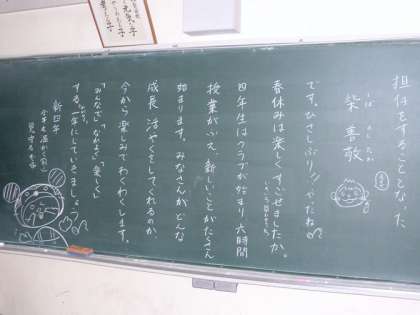 担任をすることとなった、
柴 善敬
しば よしたか
です。ひさしぶり!!やったね
春休みは楽しくすごせましたか。
四年生はクラブが始まり、六時間
授業がふえ、新しいことがたくさん
始まります。みなさんがどんな
成長、活やくをしてくれるのか、
今から楽しみでわくわくします。
「みんなで」「なかよく」「楽しく」
する一年にしていきましょう
新四年